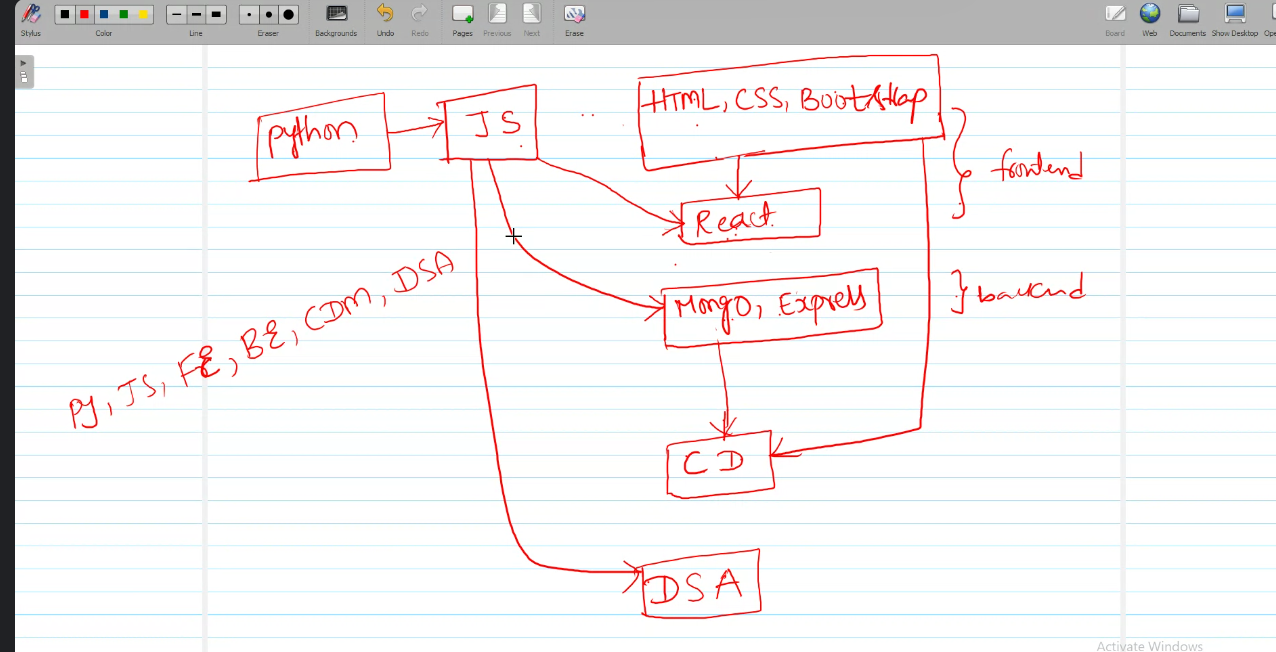 Stylus Color Line Eraser Backgrounds Undo Redo Pages Previous Next Erase Board Web Documents Show Desktop Ope
HTML, CSS, Bootstrap
python
JS
frontend
React
Mongo, Express
backend
PY, JS, FE, BE, CDM, DSA
CD
DSA
Activate Windows